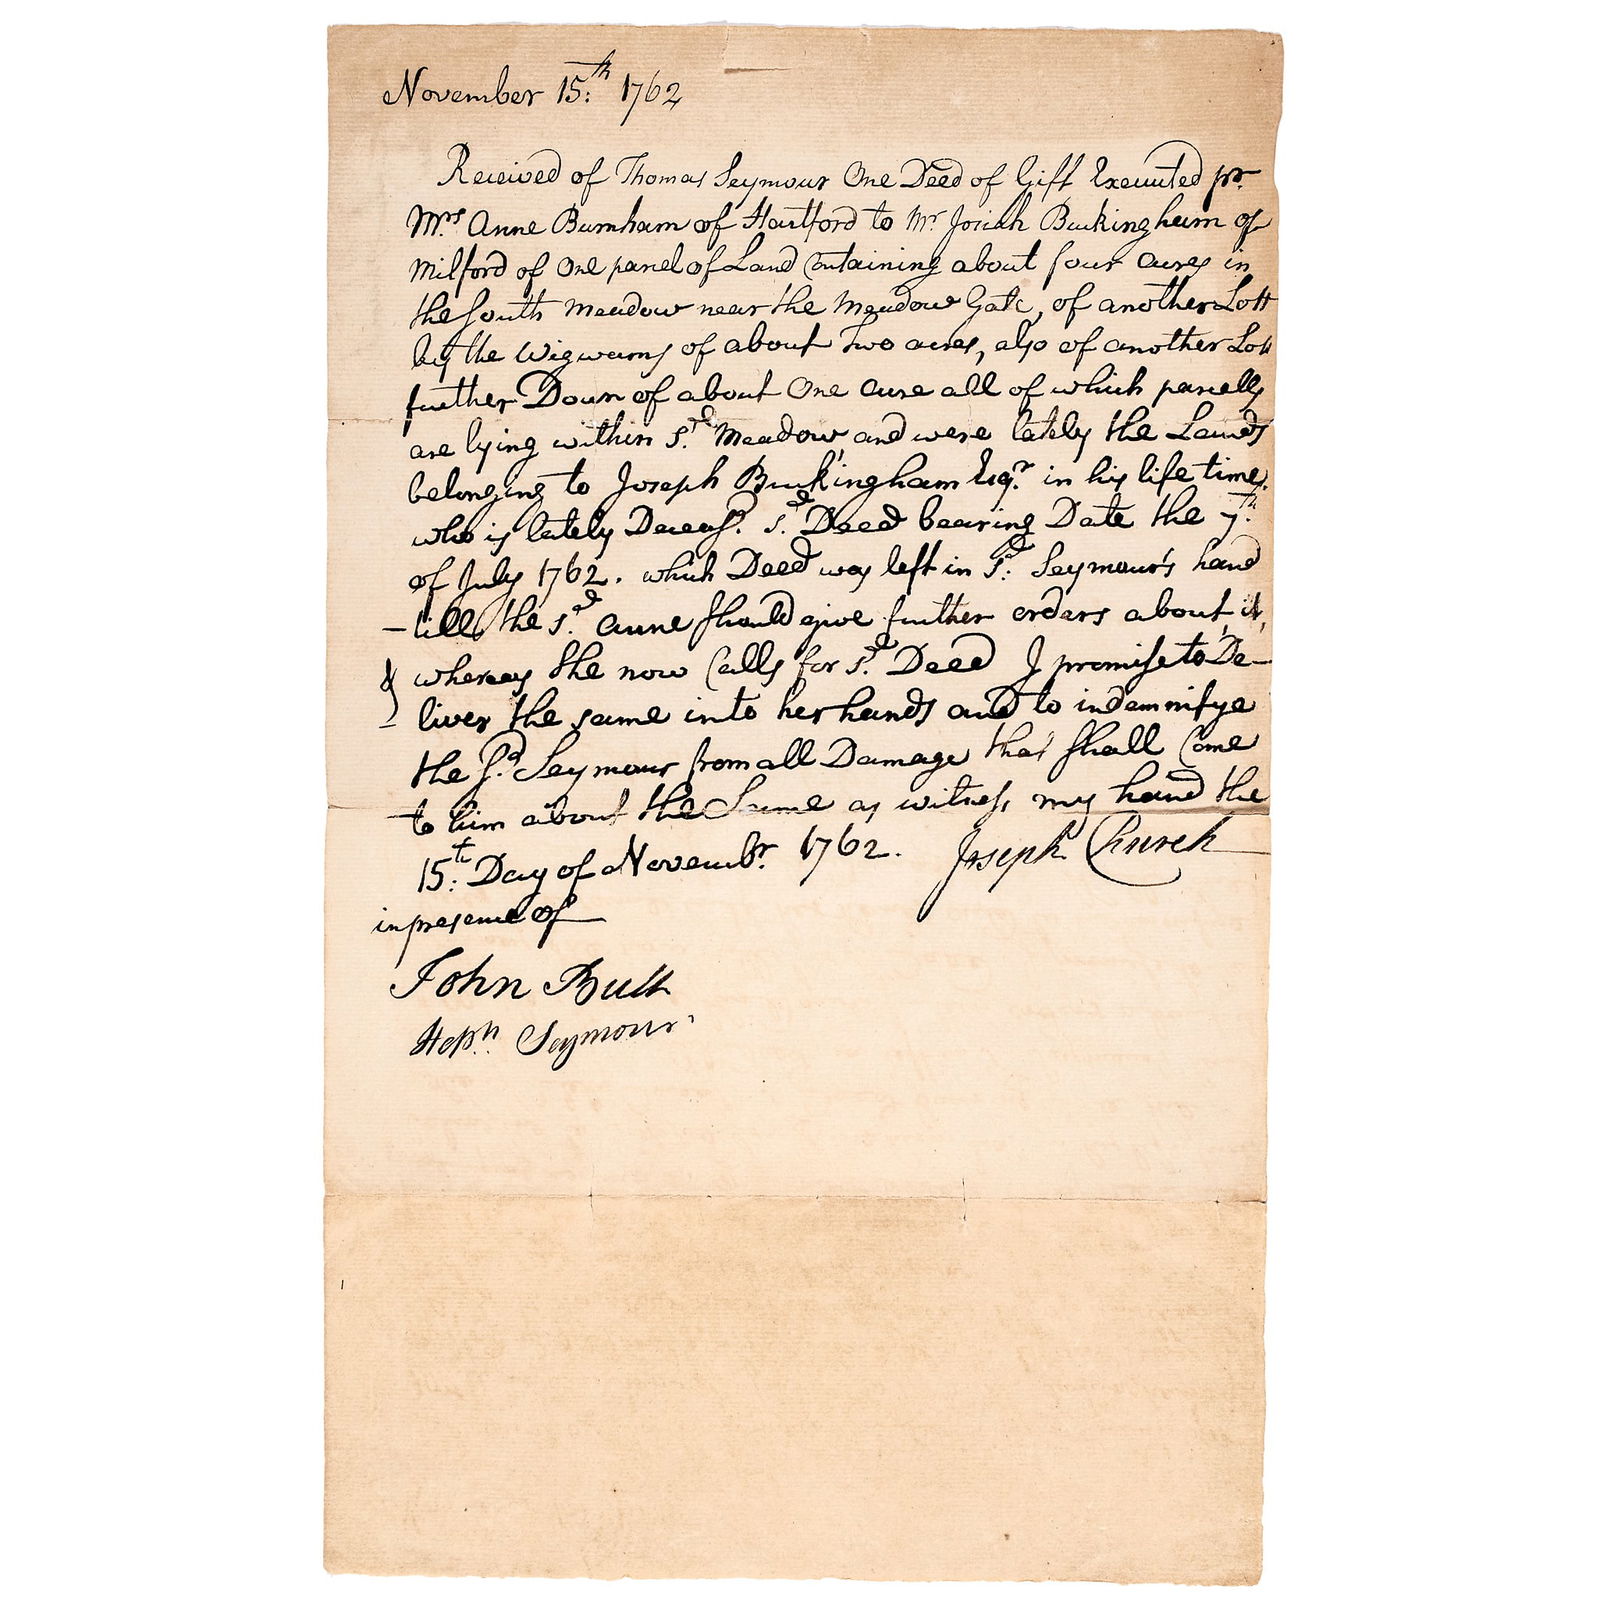 November 15:th 1762
Received of Thomas Seymour One Deed of Gift Executed pr.
Mrs Anne Burnham of Hartford to Mr Josiah Buckingham of
Milford of One parcel of Land Containing about four acres in
the South Meadow near the Meadow Gate, of another Lott
by the Wigwams of about Two acres, also of another Lott
further Down of about One acre all of which parcells
are lying within sd. Meadow and were lately the Lands
belonging to Joseph Buckingham Esqr. in his life time.
who is lately Deceasd. sd. Deed bearing Date the 7.th
of July 1762. which Deed was left in sd: Seymour's hand
till the sd. Anne should give further orders about it,
& whereas the now Calls for sd. Deed I promise to De-
liver the same into her hands and to indemnifye
the sd. Seymour from all Damage that shall Come
to him about the Same as witness my hand the
15:th Day of Novembr. 1762. Joseph Church
in presence of
John Bull
Hepn. Seymour